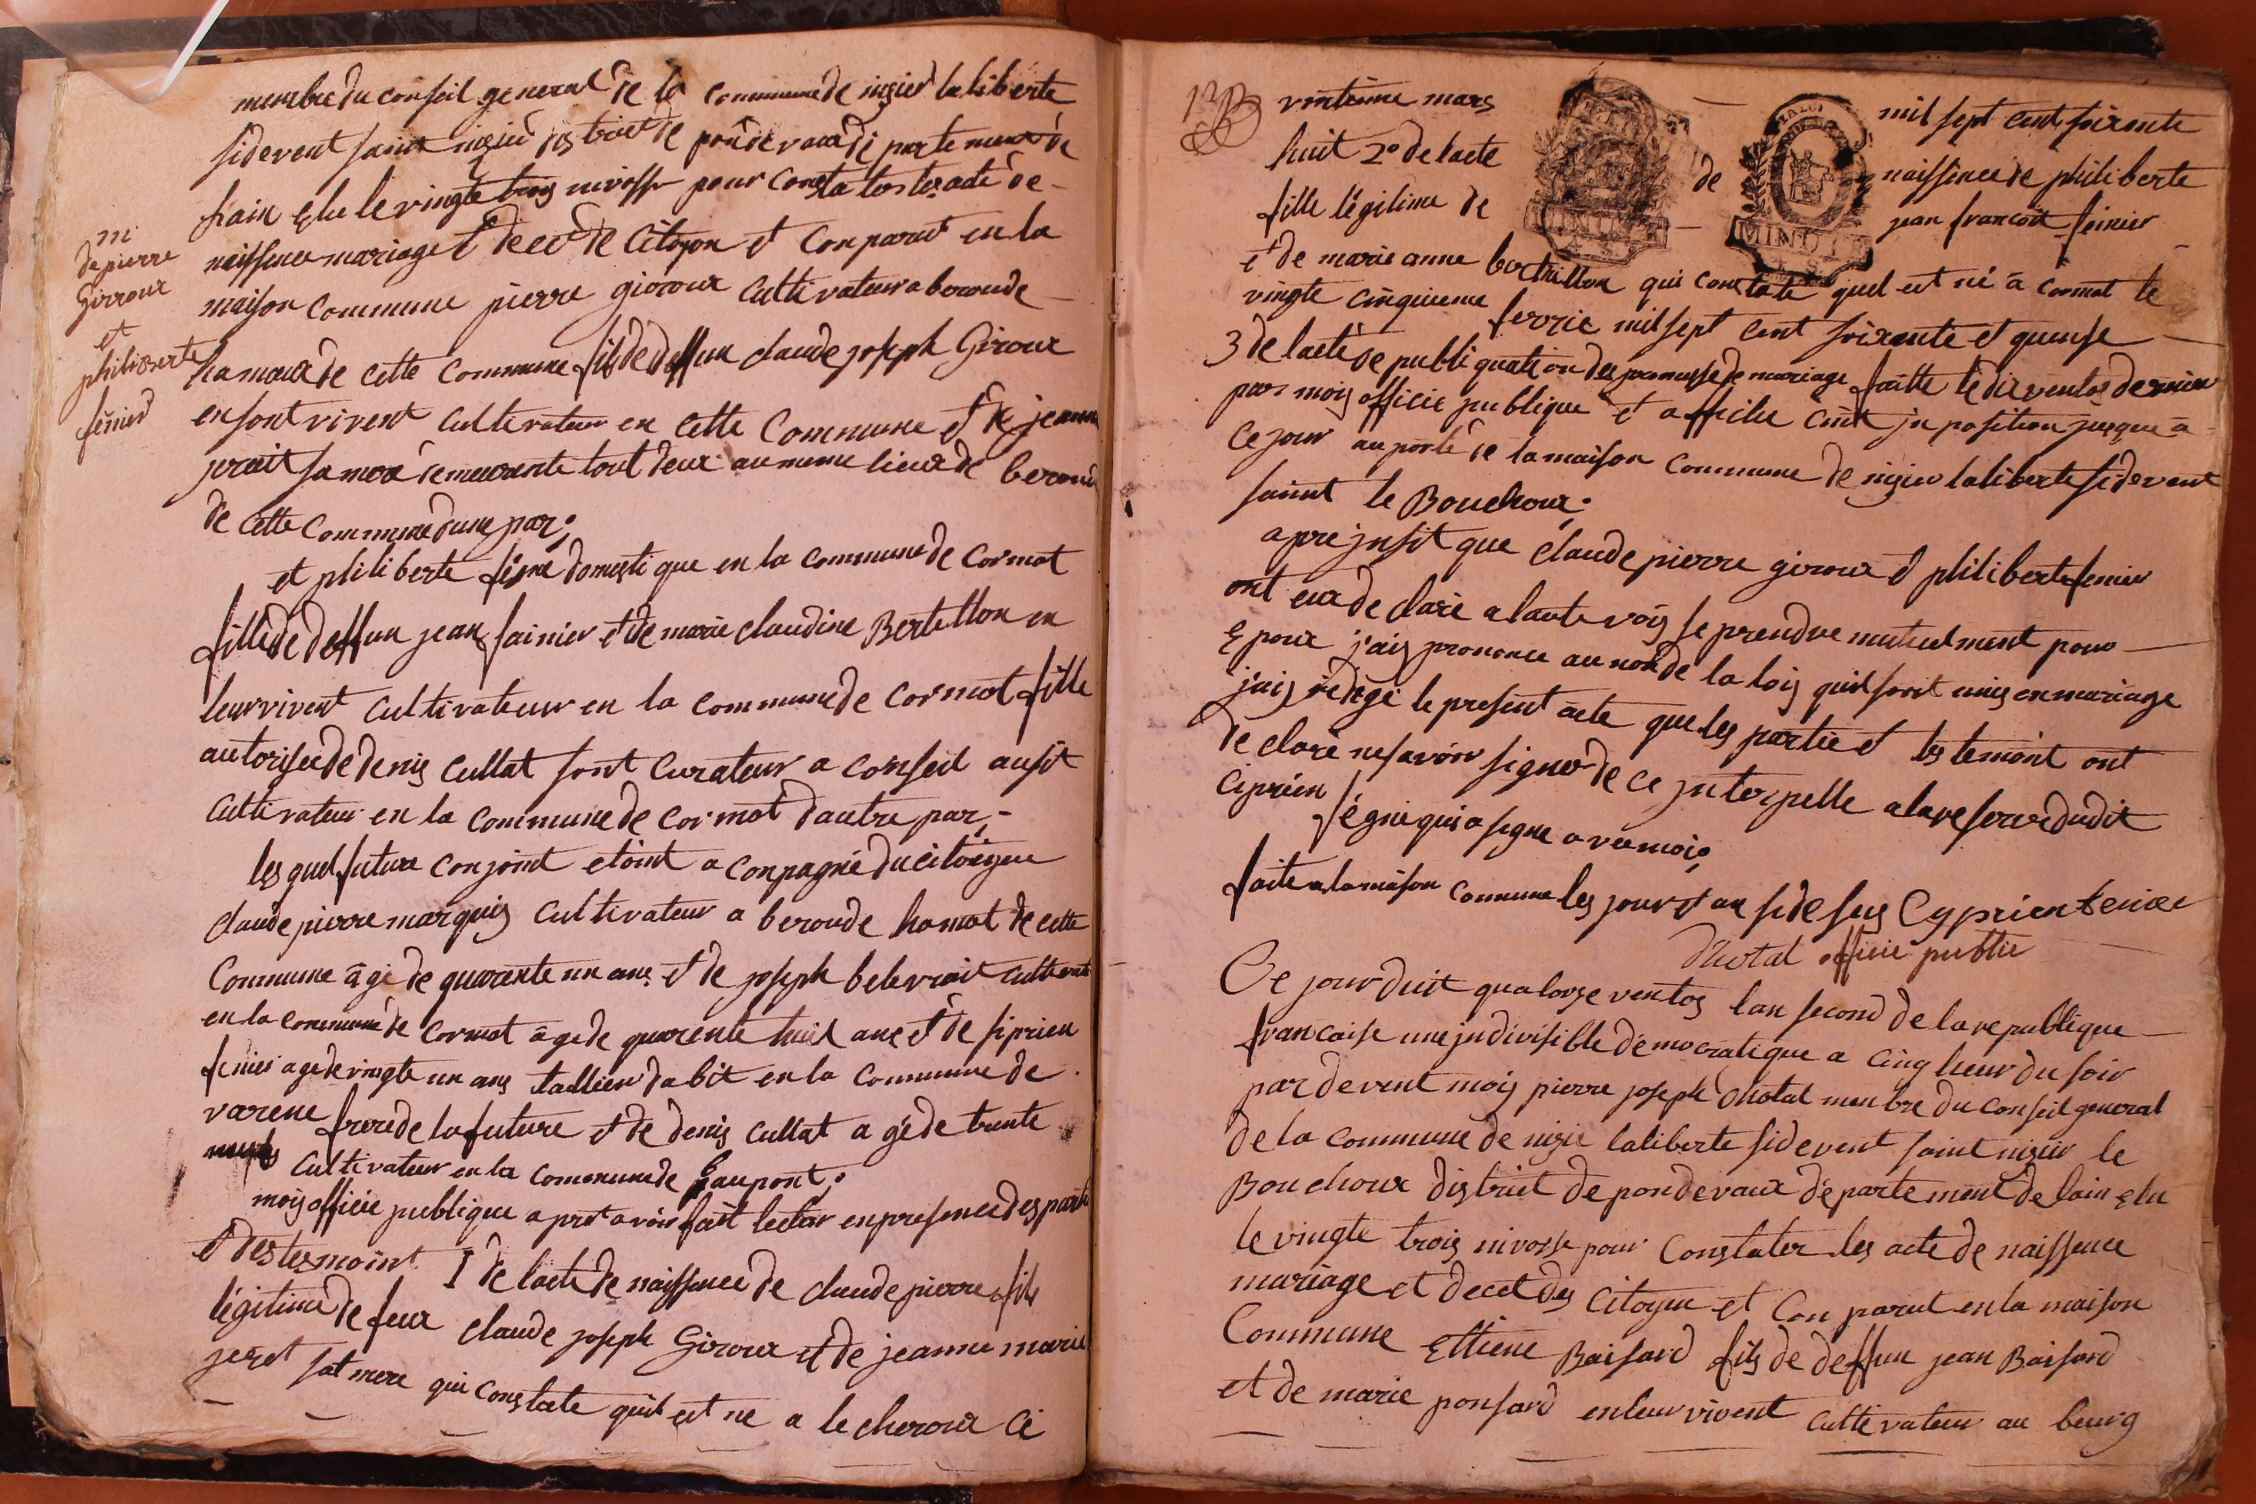 membre du conseil general de la commune de nizier la liberte
sidevent saint nizier district de pondevaux departement de
lain elu le vingte trois nivosse pour constater les acte de
naissence mariage et decet de citoyen et conparut en la
m
de pierre
Girroux
et
philiberte
fenier
maison commune pierre giroux cultivateur a beroude
hameaux de cette commune fils de deffun claude joseph Giroux
en sont vivent cultivateur en cette commune et de jeanne
jerait sa mere demeurante tout deux au meme lieux de beroude
de cette commune dune par;
et philiberte fenie domestique en la commune de cormot
fille de deffun jean fainier et de marie claudine Bertellon en
leur vivent cultivateur en la commune de cormot fille
autorisee de denis cullat sont curateur a conseil ausit
cultivateur en la commune de cormot dautre par,-
les quel futur conjoint etoint a conpagné du citoiyen
claude pierre marquis cultivateur a beroude hamot de cette
commune agé de quarente un ans et de joseph belevrait cultivat
en la commune de cormot agé de quarente huit ans et de siprien
fenier age de vingte un ans tallieur dabit en la commune de
varene frere de la future et de denis cullat a gé de trente
neufs cultivateur en la commune de Gaupont;
mois officie publique a pret avoir fait lectur en presence des partie
et des tesmoint I de lacte de naissence de claude pierre fils
légitime de feux claude joseph Giroux et de jeanne marie
jeret sat mere qui constate quil est ne a le cheroux ci
13 vintieme mars mil sept cent soixente
huit 2º de lacte de naissence de philiberte
fille légitime de jean francoit fenier
et de marie anne bertrellon qui constate quel est né a cormot le
vingte cinquieme fevrie mil sept cent soixente et quense
3 de lacte de publiquation des promesse de mariage faitte le dix ventos dernier
par mois officie publique et affiche cent in position jusque a
ce jour au porte de la maison commune de nizier la liberte sidevent
saint le Bouchoux;
apre insit que claude pierre giroux et philiberte fenier
ont eux de claré a laute vois se prendre mutuelment pour
Epoux j'ais prononce au non de la lois quil sont unis en mariage
j'ais redigé le present acte que les partie et les temoint ont
de claré ne savoir signer de ce interpelle a la reserve dudit
ciprien fégnie qui a signe a vec moi;
faite a la maison commune les jour et an si desus Cyprien fenier
Chotal officie public
Ce jourduit quatorze ventos lan second de la republique
francaise une indivisible démocratique a cinq heur du soir
par devent mois pierre joseph Chotal menbre du conseil general
de la commune de nizie la liberte sidevent saint nizier le
Bouchoux district de pondevaux département de lain elu
le vingte trois nivosse pour constater les acte de naissence
mariage et decet des citoyen et conparut en la maison
commune Ettiene Baisard fils de deffun jean Baisard
et de marie ponsard en leur vivent cultivateur au beurg